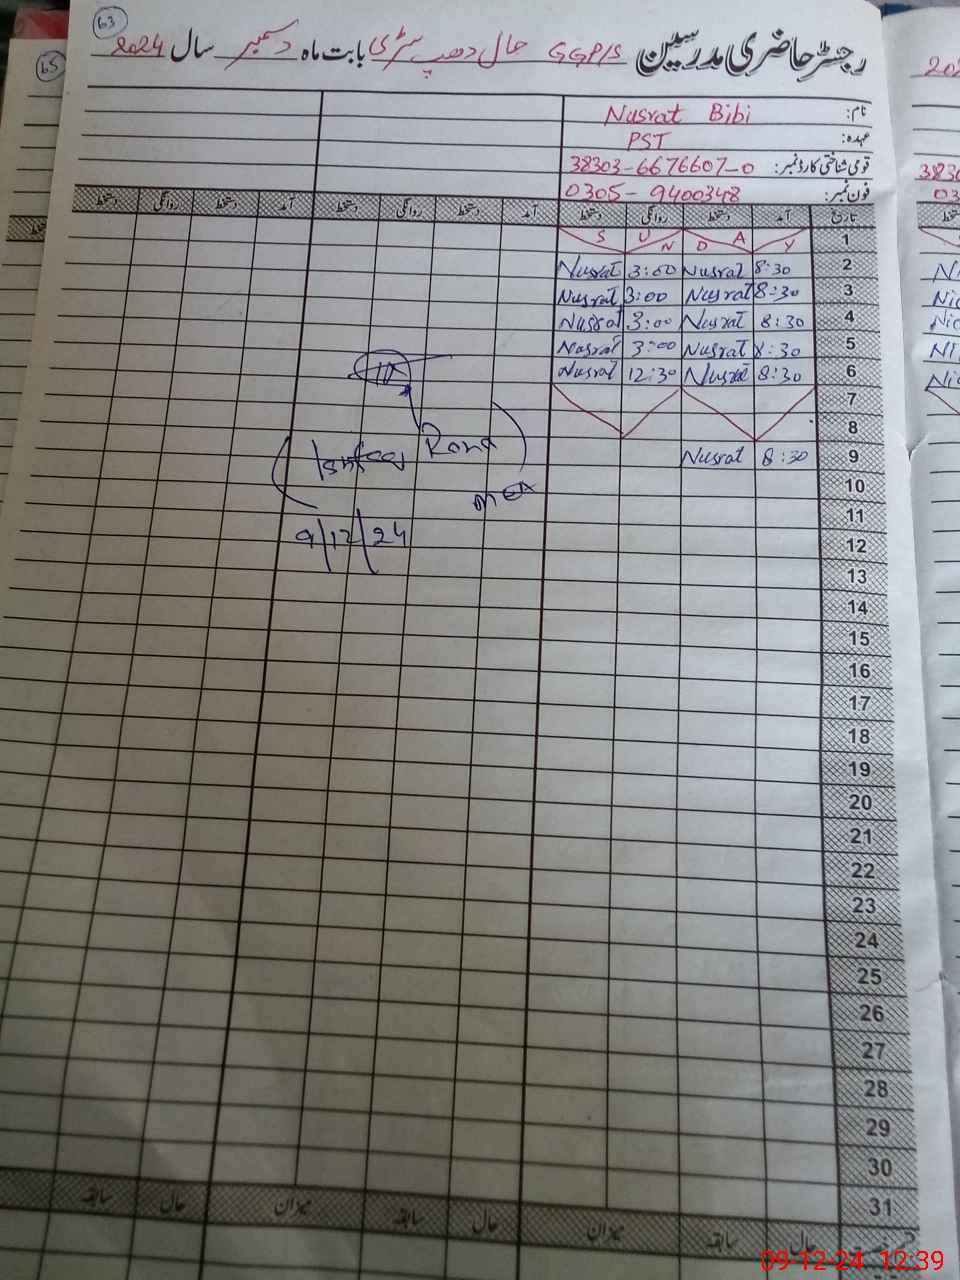 63
رجسٹر حاضری مدرسین GGP/S حال دھپ سڑی بابت ماہ دسمبر سال 2024
65
نام: Nusrat Bibi
عہدہ: PST
قومی شناختی کارڈ نمبر: 38303-6676607-0
فون نمبر: 0305-9400348
تاریخ آمد دستخط روانگی دستخط آمد دستخط روانگی دستخط آمد دستخط روانگی دستخط
1 S U N D A Y
2 8:30 Nusrat 3:00 Nusrat
3 8:30 Nusrat 3:00 Nusrat
4 8:30 Nusrat 3:00 Nusrat
5 8:30 Nusrat 3:00 Nusrat
6 8:30 Nusrat 12:30 Nusrat
7
8
9 8:30 Nusrat
10
MEA
11
9/12/24
12
13
14
15
16
17
18
19
20
21
22
23
24
25
26
27
28
29
30
31
حال سابقہ میزان حال سابقہ میزان حال سابقہ
09-12-24 12:39